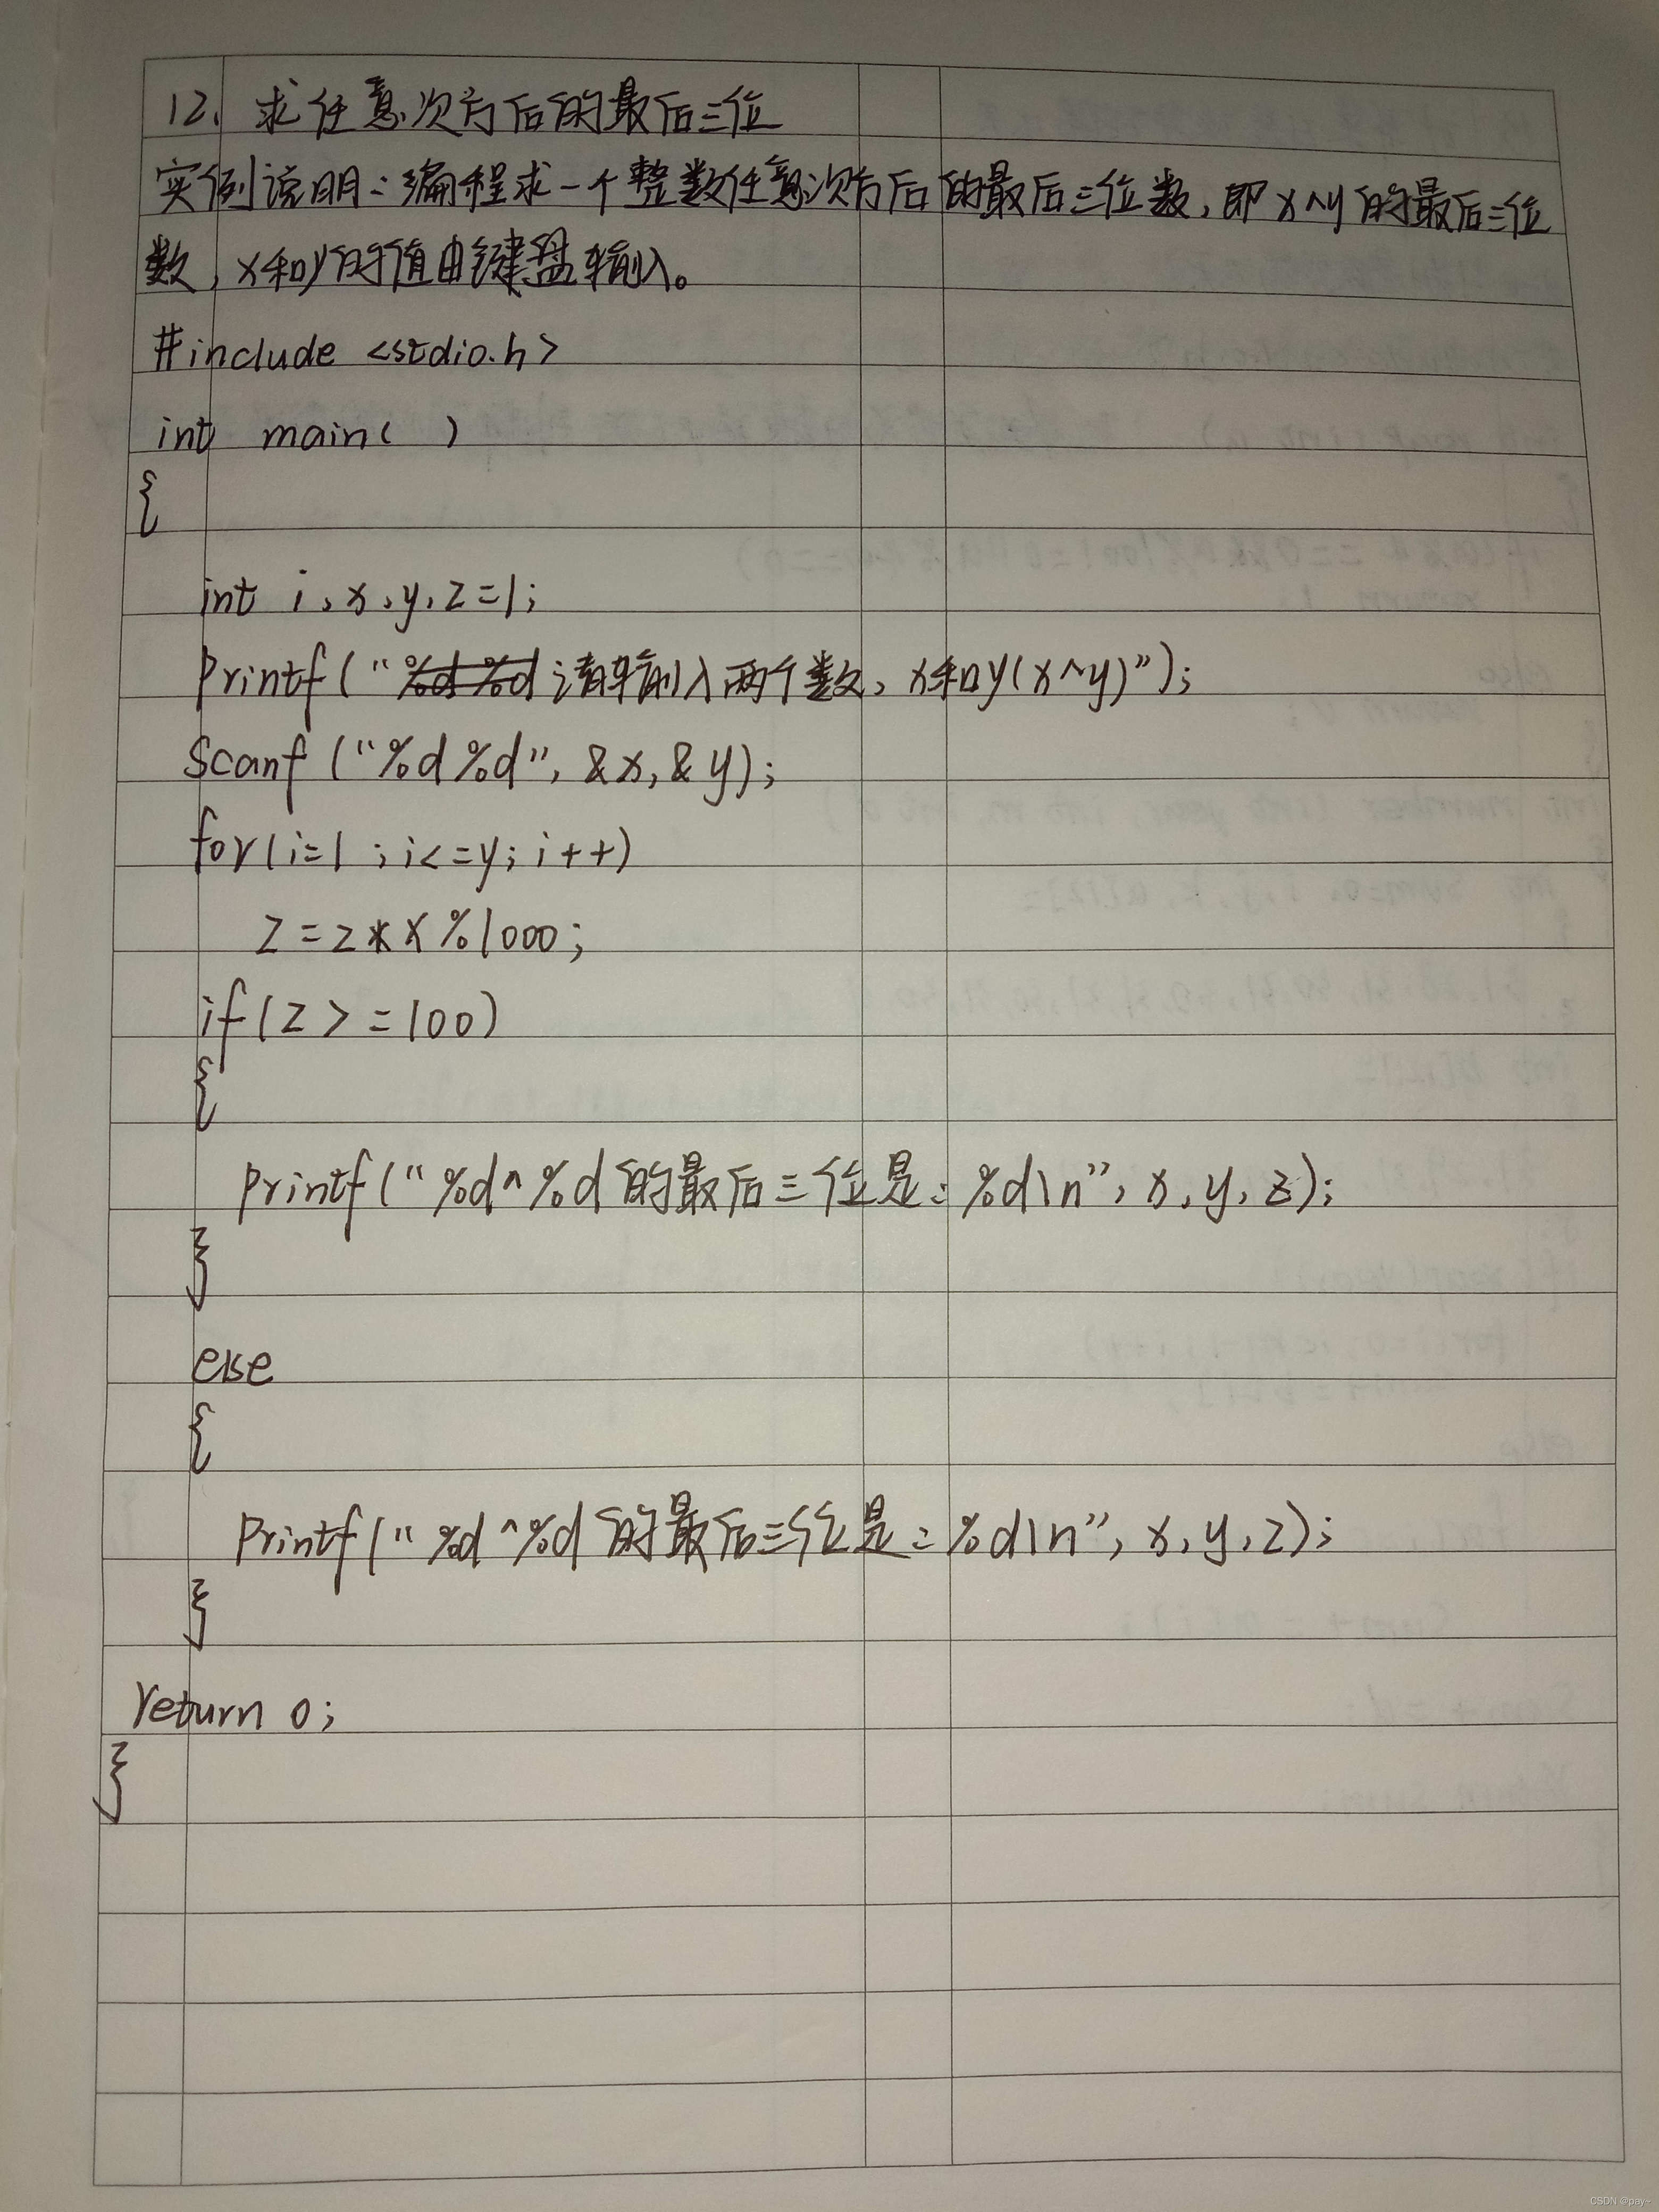 12. 求任意次方后的最后三位
实例说明：编程求一个整数任意次方后的最后三位数，即x^y的最后三位
数，x和y的值由键盘输入。
#include <stdio.h>
int main( )
{
int i,x,y,z=1;
printf("%d %d请输入两个数，x和y(x^y)");
scanf("%d%d",&x,&y);
for(i=1;i<=y;i++)
z=z*x%1000;
if(z>=100)
{
printf("%d^%d的最后三位是：%d\n",x,y,z);
}
else
{
printf("%d^%d的最后三位是：%d\n",x,y,z);
}
return 0;
}
CSDN @pay~